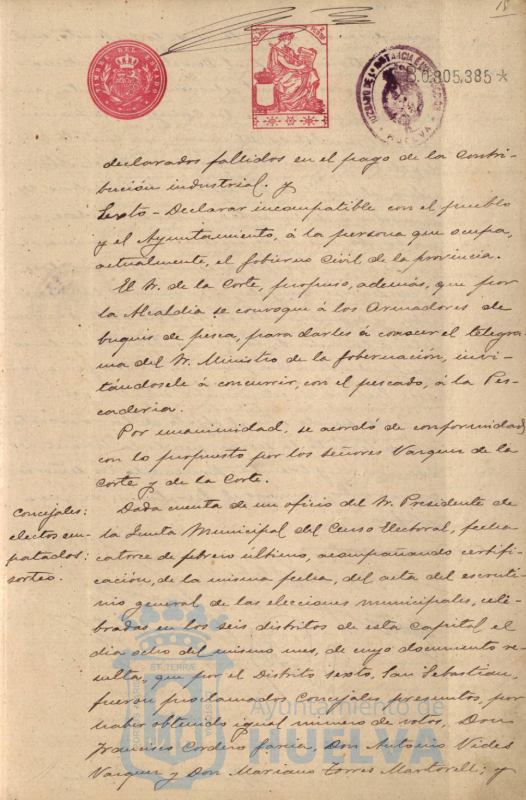 18
TIMBRE DEL ESTADO
B.0.805,385 *
HUELVA
declarados fallidos en el pago de la contri-
bución industrial. y
Sexto - Declarar incompatible con el pueblo
y el Ayuntamiento, á la persona que ocupa,
actualmente, el Gobierno Civil de la provincia.
El Sr. de la Corte, propuso, además, que por
la Alcaldia se convoque á los Armadores de
buques de pesca, para darles á conocer el telegra-
ma del Sr. Ministro de la Gobernación, invi-
tándosele á concurrir, con el pescado, á la Pes-
caderia.
Por unanimidad, se acordó de conformidad
con lo propuesto por los señores Vazquez de la
Corte y de la Corte.
Concejales:
electos em-
patados:
sorteo.
Dada cuenta de un oficio del Sr. Presidente de
la Junta Municipal del Censo Electoral, fecha
catorce de febrero último, acompañando certifi-
cación, de la misma fecha, del acta del escruti-
nio general de las elecciones municipales, cele-
bradas en los seis distritos de esta Capital el
dia ocho del mismo mes, de cuyo documento re-
sulta, que por el Distrito sexto, San Sebastian,
fueron proclamados Concejales presuntos, por
haber obtenido igual número de votos, Don
Francisco Cordero Garcia, Don Antonio Vides
Vazquez y Don Mariano Torres Martorell; y
Ayuntamiento de
HUELVA